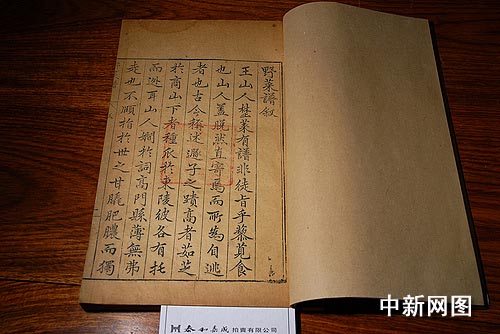 野菜譜叙
王山人埜菜有譜非徒旨乎藜莧食
也山人蓋脫然直寄焉而所為自逃
者也古今稱述遯子之蹟高者茹芝
於商山下者種瓜於東陵彼各有托
而逃耳山人嫺於詞高門縣薄無弗
走也不顧指於世之甘脆肥膿而獨
泰和嘉成 拍賣有限公司
中新网图